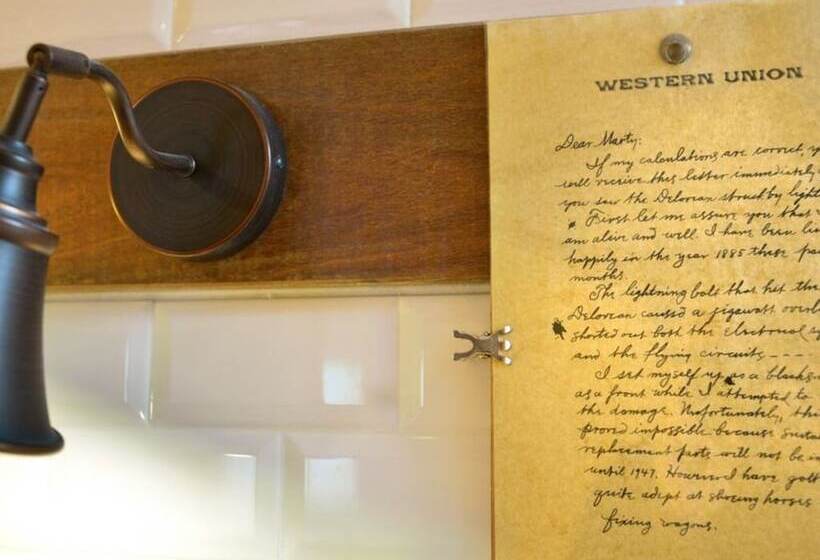 WESTERN UNION
Dear Marty:
If my calculations are correct, y
will receive this letter immediately
you saw the Delorean struck by light
First let me assure you that
am alive and well. I have been li
happily in the year 1885 these pa
months.
The lightning bolt that hit the
Delorean caused a gigawatt overl
shorted out both the electrical sy
and the flying circuits ----
I set myself up as a blacks
as a front while I attempted to
the damage. Unfortunately, thi
proved impossible because suita
replacement parts will not be in
until 1947. However I have gott
quite adept at shoeing horses
fixing wagons.